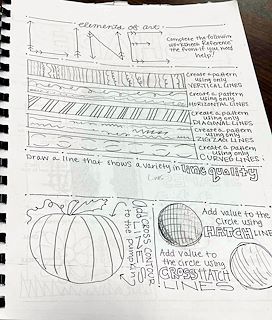 elements of art
LINE
Complete the following
worksheet. Reference
the if you need
help!
Create a pattern
using only
VERTICAL LINES
Create a pattern
using only
HORIZONTAL LINES
Create a pattern
using only
DIAGONAL LINES
Create a pattern
using only
ZIGZAG LINES
Create a pattern
using only
CURVED LINES
Draw a line that shows a variety in line quality
Line
Add CROSS CONTOUR
LINES
to the PUMPKIN
Add value to the
Circle using
HATCH LINES
Add value to
the circle using
CROSS HATCH
LINES